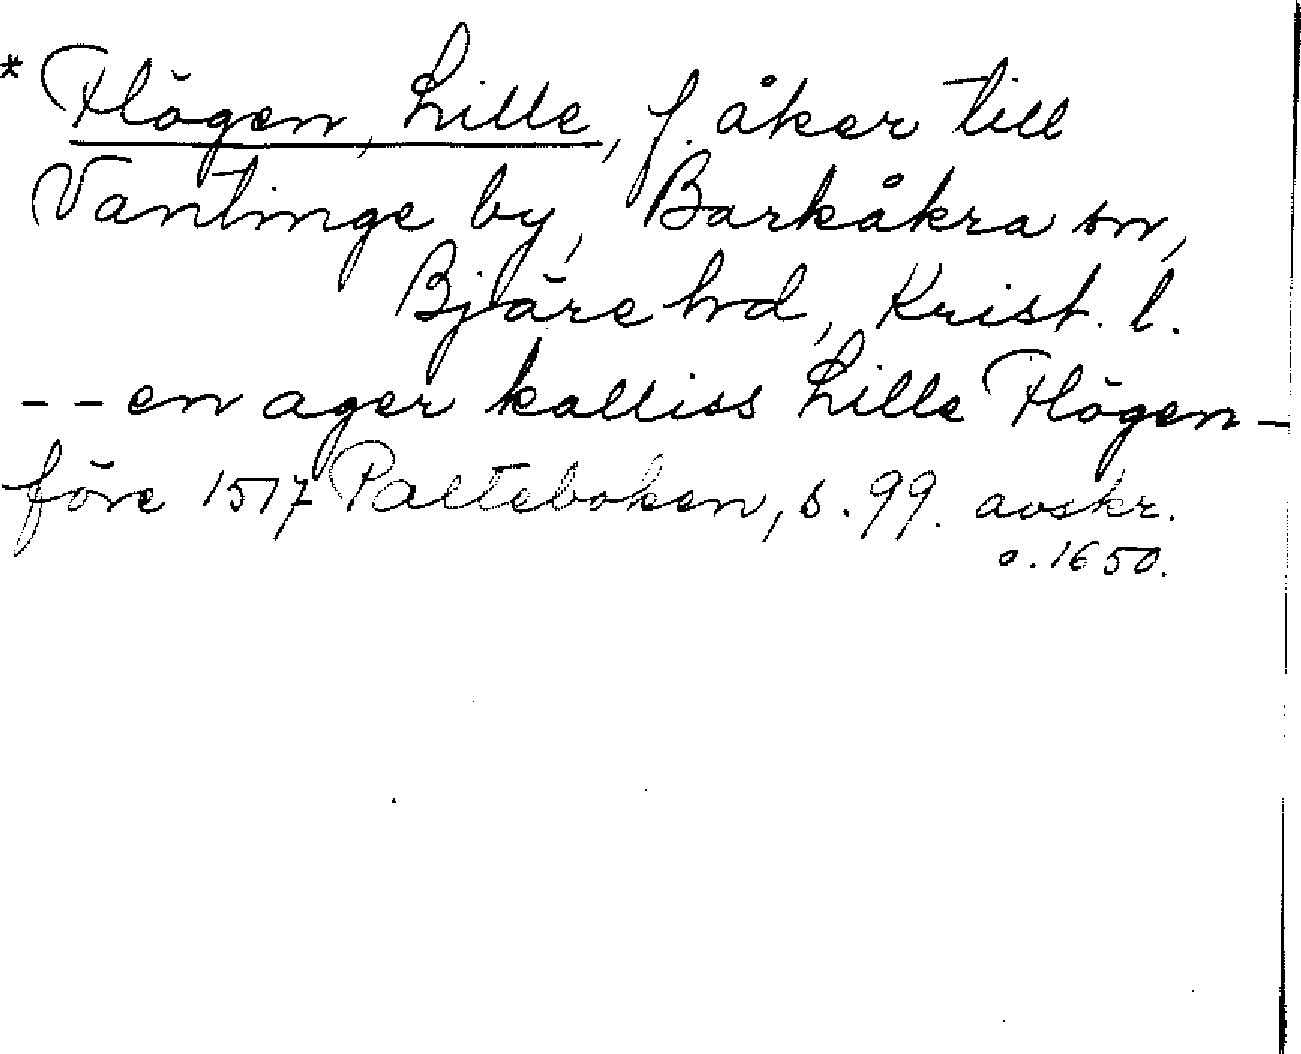 * Högen, Lille, f. åker till
Vantinge by, Barkåkra sn,
Bjäre hrd, Krist. l.
-- en ager kalliss Lille Högen -
före 1517 Palteboken, s. 99. avskr.
o. 1650.